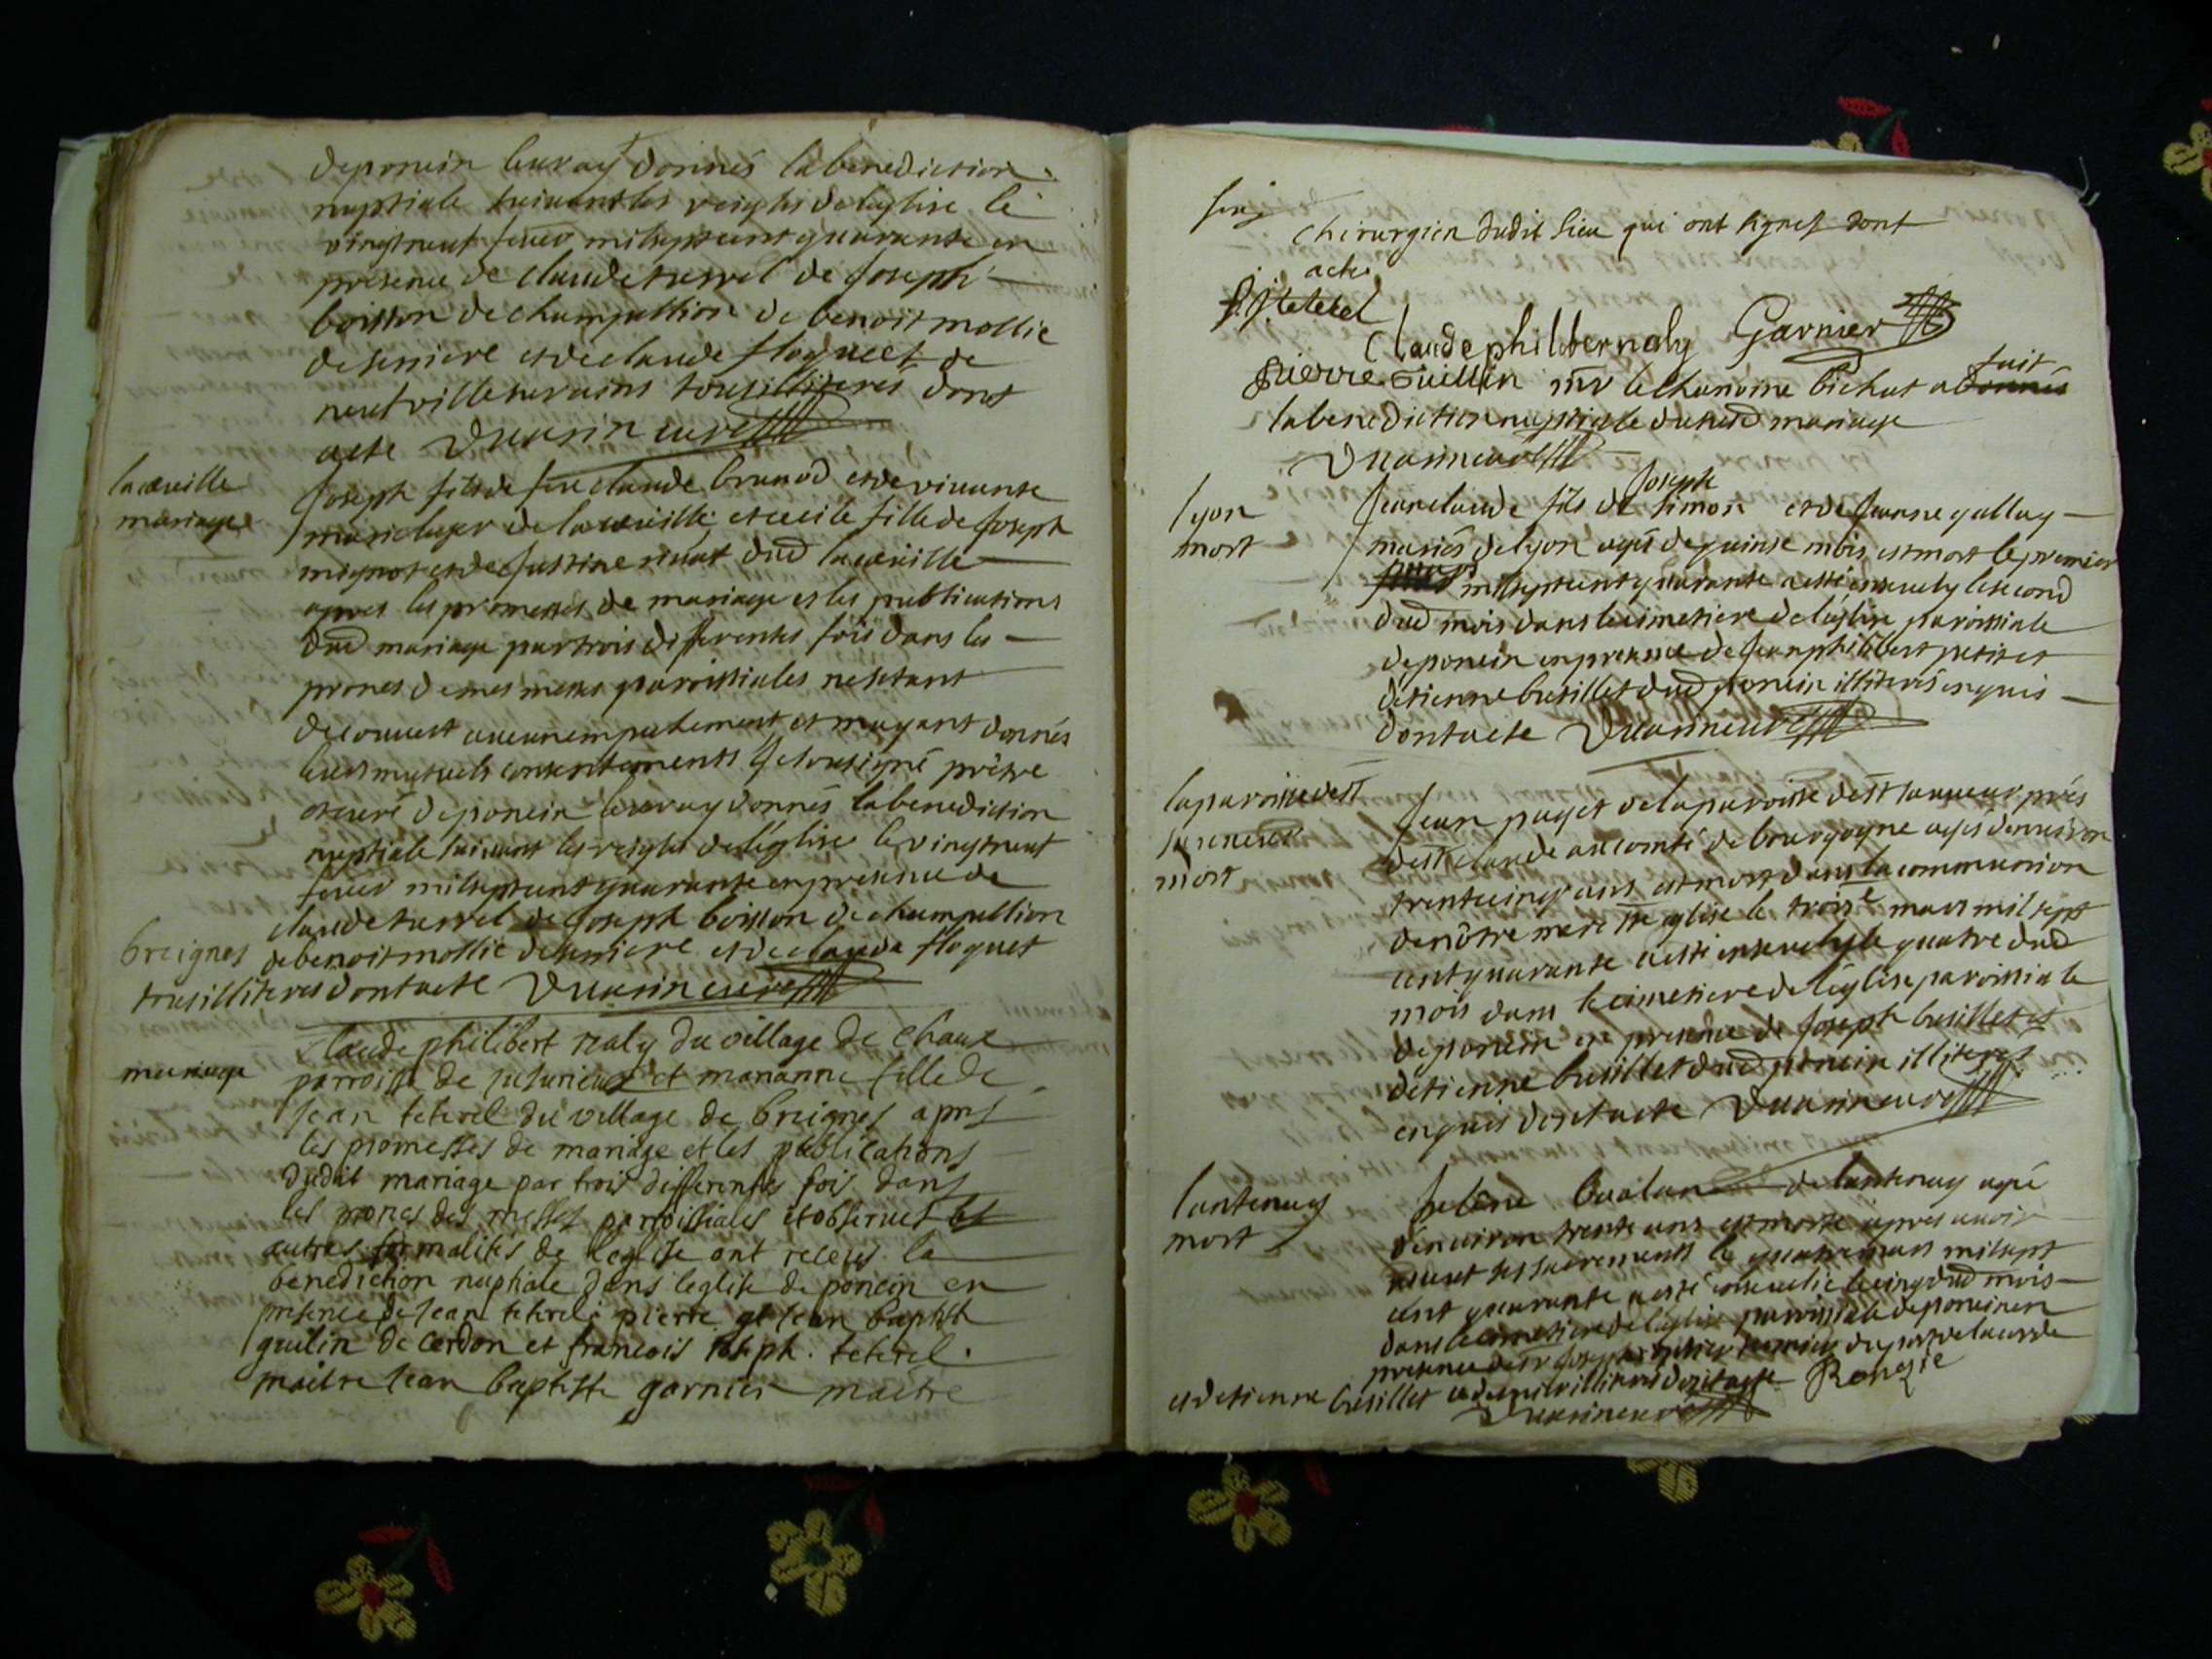 deponcin leur ay donnés la benediction
nuptiale suivant les reigles de leglise le
vingtneuf fevrier mil sept cent quarante en
presence de claude turrel de Joseph
boisson de champollion de benoit mollie
de serriere et de claude floquet de
neufville sur ains tous illiteres dont
acte curé
mariage
Joseph fils de feu claude brunod et de vivante
marie et cecile fille de Joseph
mignot et de Justine dud
apres les promesses de mariage et les publications
dud mariage par trois differentes fois dans les
prones de mes messes paroissiales nestant
decouvert aucun empechement et mayant donnés
leurs mutuels consentements Je soussigné prêtre
et curé deponcin leur ay donnés la benediction
nuptiale suivant les reigles de léglise le vingtneuf
fevrier mil sept cent quarante en presence de
claude turrel de Joseph boisson de champollion
breignes de benoit mollie de serriere et de claude floquet
tous illiteres dont acte curé
Claude philibert naly du village de Chaux
mariage parroisse de jusurieux et marianne fille de
Jean teterel du village de breignes apres
les promesses de mariage et les publications
dudit mariage par trois differentes fois dans
les prones des messes parroissiales et observes les
autres formalités de leglise ont receus la
benediction nuptiale dans leglise de poncin en
presence de Jean teterel pierre et Jean baptiste
guilin de Cerdon et francois Joseph teterel
maitre Jean baptiste garnier maitre
chirurgien dudit lieu qui ont signes dont
acte
f. j. teterel
Claude philibert naly Garnier
fait
pierre Guillin mr le chanoine bichat a donnés
la benediction nuptiale du susd mariage
Joseph
lyon Jean claude fils de simon et de Jeanne gallay
mort mariés de lyon agés de quinse mois est mort le premier
mars mil sept cent quarante a esté ensevely le second
dud mois dans le cimetiere de léglise paroissiale
deponcin en presence de Jean philibert petit et
detienne busillet dud poncin illiterés enquis
dont acte curé
la paroisse de st Jean puget de la paroisse de st près
mort de st claude au comté de bourgogne agés denviron
trente cinq ans est mort dans la communion
de nôtre mere ste eglise le trois mars mil sept
cent quarante a esté ensevely le quatre dud
mois dans le cimetiere de léglise paroissiale
deponcin en presence de Joseph busillet et
detienne busillet dud poncin illiteres
enquis dont acte curé
lantenay helêne de lantenay agée
mort denviron trente ans est morte apres avoir
receut ses sacrements le quatre mars mil sept
cent quarante a esté ensevelie le cinq dud mois
dans le cimetiere de léglise paroissiale deponcin en
presence de Joseph
et detienne busillet illiteres dont acte Rongie
curé